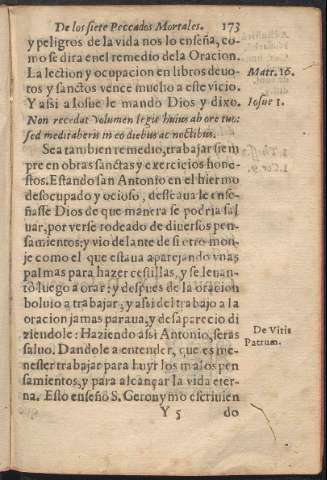 De los siete Peccados Mortales. 173
y peligros de la vida nos lo enseña, co-
mo se dira en el remedio de la Oracion.
La lection y ocupacion en libros deuo-
tos y sanctos vence mucho a este vicio. Matt. 16.
Y assi a Iosue le mando Dios y dixo. Iosue 1.
Non recedat volumen legis huius ab ore tuo:
sed meditaberis in eo diebus ac noctibus.
Sea tambien remedio, trabajar siem
pre en obras sanctas y exercicios hone-
stos. Estando san Antonio en el hiermo
desocupado y ocioso, desseaua le ense-
ñasse Dios de que manera se podria sal
uar, por verse rodeado de diuersos pen-
samientos: y vio delante de si otro mon-
je como el que estaua aparejando vnas
palmas para hazer cestillas, y se leuan-
to luego a orar: y despues de la oracion
boluio a trabajar, y assi del trabajo a la
oracion jamas paraua, y desaparecio di
ziendole: Haziendo assi Antonio, seras
saluo. Dandole a entender, que es me- De Vitis Patrum.
nester trabajar para huyr los malos pen
samientos, y para alcançar la vida eter-
na. Esto enseño S. Geronymo escriuien
Y 5 do